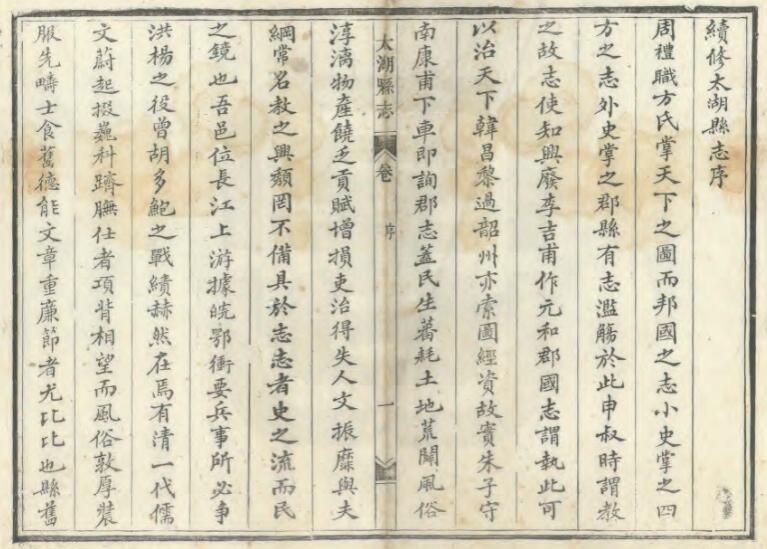 續修太湖縣志序
周禮職方氏掌天下之圖而邦國之志小史掌之四
方之志外史掌之郡縣有志濫觴於此申叔時謂教
之故志使知興廢李吉甫作元和郡國志謂執此可
以治天下韓昌黎過韶州亦索圖經資故實朱子守
南康甫下車即詢郡志蓋民生蕃耗土地荒闢風俗
太湖縣志 卷 序 一
淳漓物產饒乏貢賦增損吏治得失人文振靡與夫
綱常名教之興頹罔不備具於志志者史之流而民
之鏡也吾邑位長江上游據皖鄂衝要兵事所必爭
洪楊之役曾胡多鮑之戰績赫然在焉有清一代儒
文蔚起掇巍科躋膴仕者項背相望而風俗敦厚裝
服先疇士食舊德能文章重廉節者尤比比也縣舊